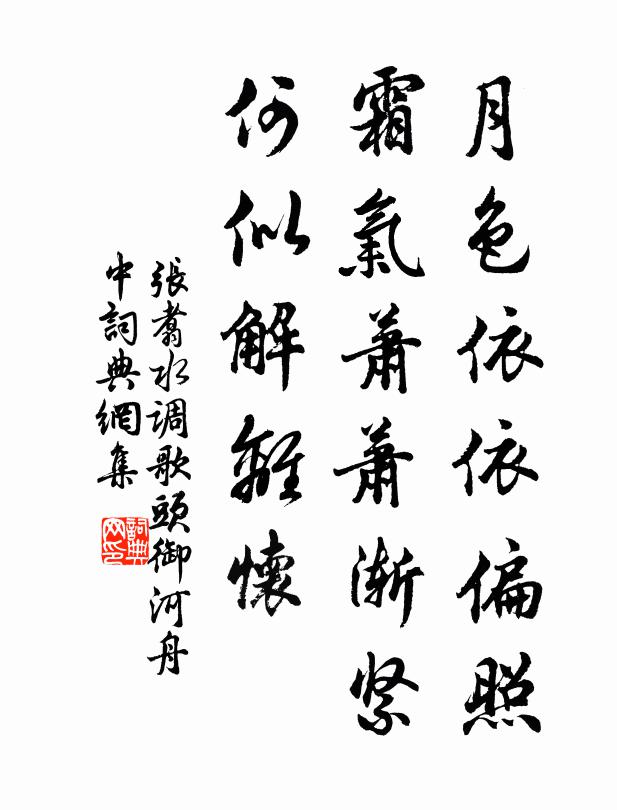 月色依依偏照
霜氣蕭蕭渐紧
何似解離懷
張翥水调歌頭御河舟
中詞典網集
詞典网印